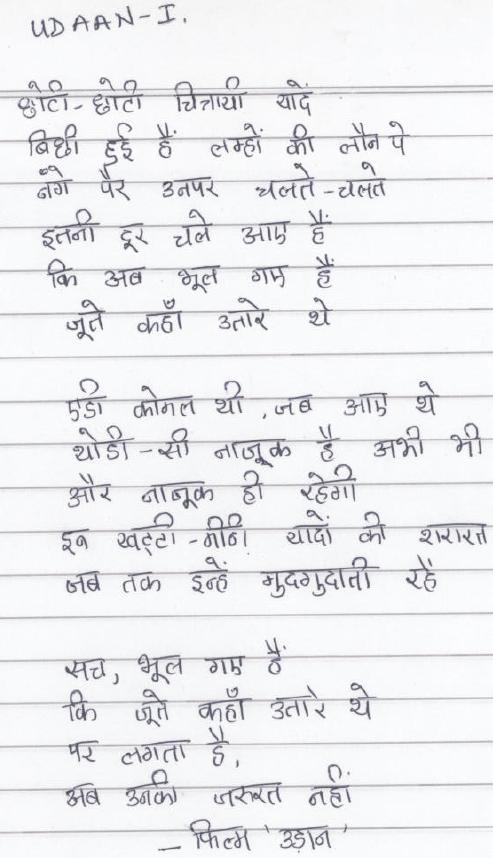 UDAAN-I.
छोटी-छोटी चित्रायी यादें
बिछी हुई हैं लम्हों की लौन पे
नंगे पैर उनपर चलते-चलते
इतनी दूर चले आए हैं
कि अब भूल गए हैं
जूते कहाँ उतारे थे
एडी कोमल थी, जब आए थे
थोडी-सी नाजूक है अभी भी
और नाजूक ही रहेगी
इन खट्टी-मीठी यादों की शरारत
जब तक इन्हें गुदगुदाती रहें
सच, भूल गए हैं
कि जूते कहाँ उतारे थे
पर लगता है,
अब उनकी जरुरत नहीं.
– फिल्म 'उड़ान'